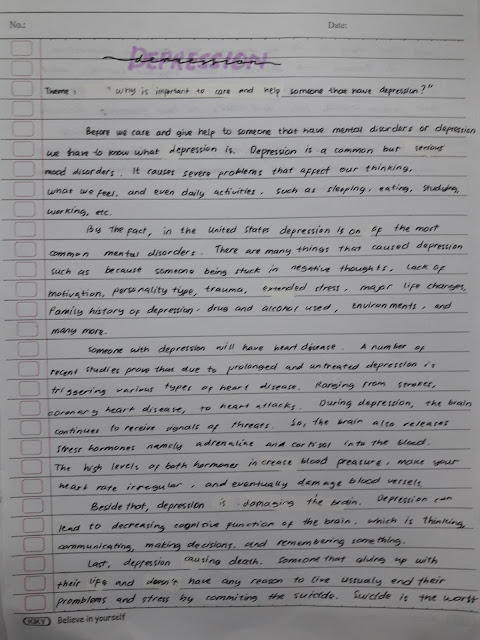 No.: Date:
DEPRESSION
depression
Theme : "Why is important to care and help someone that have depression?"
Before we care and give help to someone that have mental disorders or depression
we have to know what depression is. Depression is a common but serious
mood disorders. It causes severe problems that affect our thinking,
what we feel, and even daily activities, such as sleeping, eating, studying,
working, etc.
By the fact, in the United States depression is on of the most
common mental disorders. There are many things that caused depression
such as because someone being stuck in negative thoughts, lack of
motivation, personality type, trauma, extended stress, major life changes,
family history of depression, drug and alcohol used, environments, and
many more.
Someone with depression will have heart disease. A number of
recent studies prove that due to prolonged and untreated depression is
triggering various types of heart disease. Ranging from strokes,
coronary heart disease, to heart attacks. During depression, the brain
continues to receive signals of threats. So, the brain also releases
stress hormones namely adrenaline and cortisol into the blood.
The high levels of both hormones increase blood preasure, make your
heart rate irregular, and eventually damage blood vessels
Beside that, depression is damaging the brain. Depression can
lead to decreasing cognitive function of the brain, which is thinking,
communicating, making decisions, and remembering something.
Last, depression causing death. Someone that giving up with
their life and doesn't have any reason to live ussualy end their
promblems and stress by commiting the suicide. Suicide is the worst
KIKY Believe in yourself